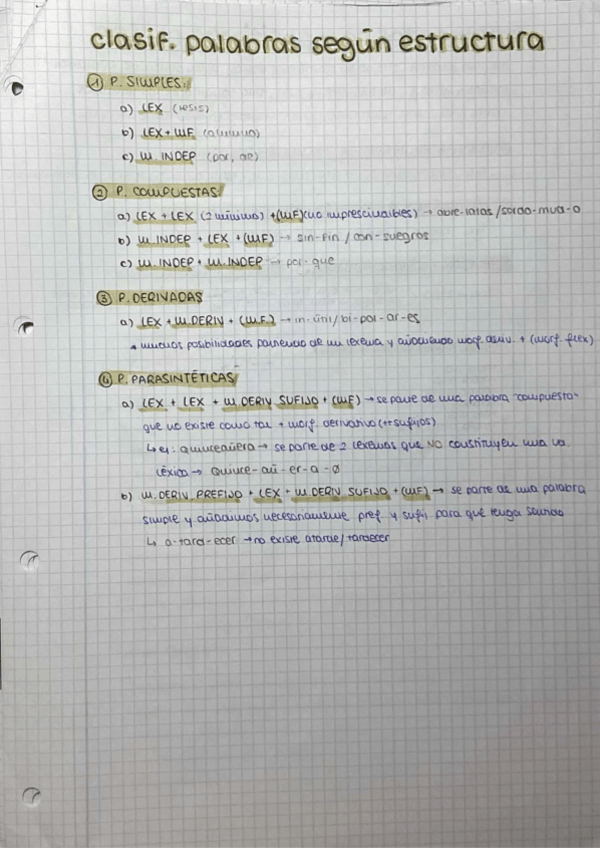 clasif. palabras según estructura
① P. SIMPLES:
a) LEX (tesis)
b) LEX + MF (alumno)
c) M. INDEP (por, de)
② P. COMPUESTAS:
a) LEX + LEX (2 mínimo) + (MF) (no imprescindibles) → abre-latas / sordo-mud-o
b) M. INDEP + LEX + (MF) → sin-fin / con-suegros
c) M. INDEP + M. INDEP → por-que
③ P. DERIVADAS
a) LEX + M. DERIV + (M.F.) → in-útil / bi-pol-ar-es
* muchos posibilidades partiendo de un lexema y añadiendo morf. deriv. + (morf. flex)
④ P. PARASINTÉTICAS
a) LEX + LEX + M. DERIV SUFIJO + (MF) → se parte de una palabra "compuesta"
que no existe como tal + morf. derivativo (→ sufijos)
↳ ej: quinceañera → se parte de 2 lexemas que NO constituyen una ud.
léxica → Quince-añ-er-a-ø
b) M. DERIV. PREFIJO + LEX + M. DERIV SUFIJO + (MF) → se parte de una palabra
simple y añadimos necesariamente pref. y sufij para que tenga sentido
↳ a-tard-ecer → no existe atarde / tardecer